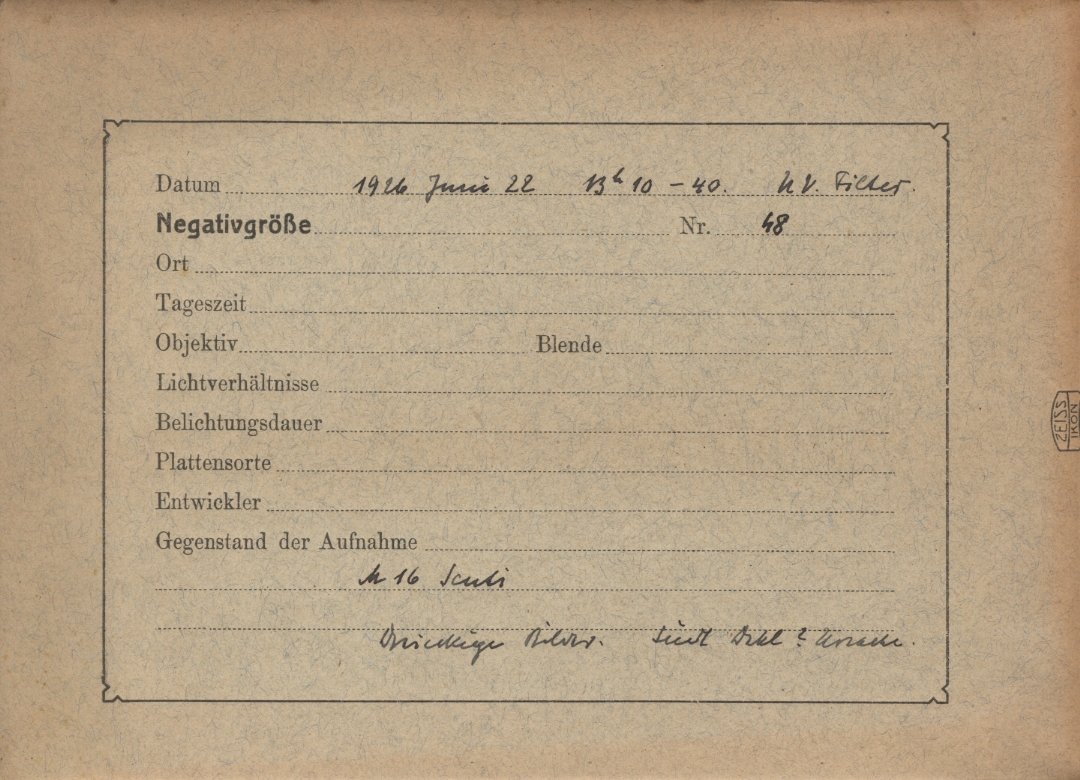 Datum 1926 Juni 22 13h 10 - 40. UV. Filter.
Negativgröße Nr. 48
Ort
Tageszeit
Objektiv Blende
Lichtverhältnisse
Belichtungsdauer
Plattensorte
Entwickler
Gegenstand der Aufnahme
M 16 Scuti
Dreieckige Bilder. Südl Dekl? Ursache.
ZEISS
IKON